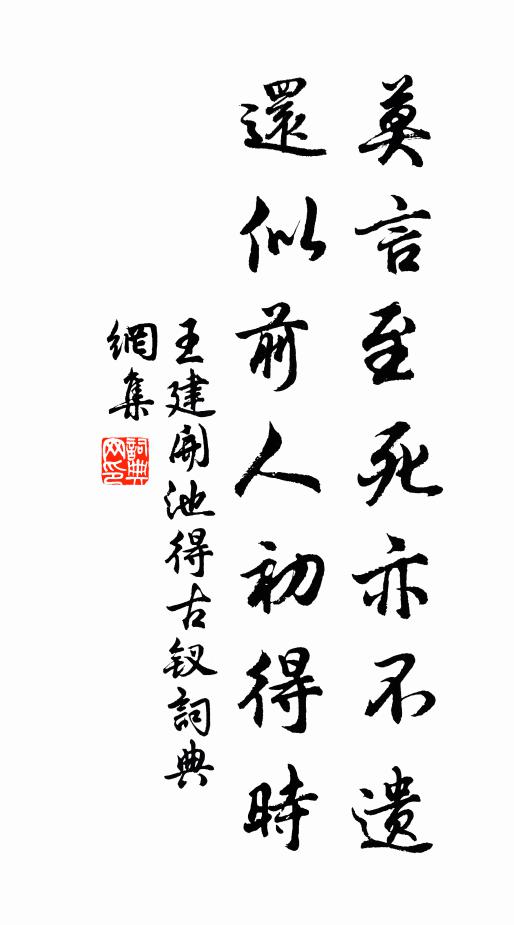 莫言至死亦不遺
還似前人初得時
王建開池得古釵詞典
網集
詞典網印